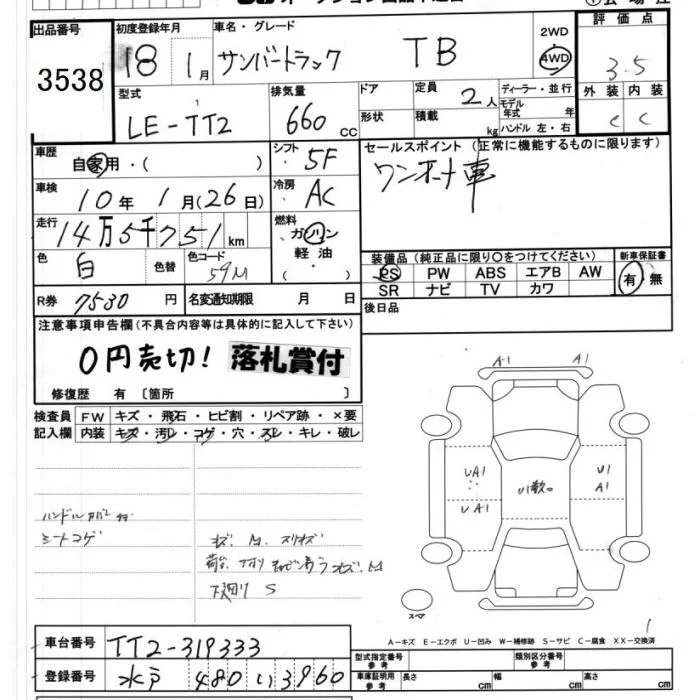 出品番号 初度登録年月 車名・グレード 2WD 評価点
3538 18年 1月 サンバートラック TB 4WD 3.5
型式 排気量 ドア 定員 ディーラー・並行 外装 内装
LE-TT2 660cc 2人 モデル年式 年 C C
形状 積載 kg ハンドル 左・右
車歴 シフト セールスポイント(正常に機能するものに限ります)
自家用・( ) 5F ワンオーナー車
車検 10年 1月(26日) 冷房 AC
走行 14万5千751km 燃料 ガソリン
軽油
・( )
色 白 色替 色コード 59M
装備品(純正品に限り○をつけてください) 新車保証書
PS PW ABS エアB AW 有・無
SR ナビ TV カワ
R券 7530円 名変通知期限 月 日 後日品
注意事項申告欄(不具合内容等は具体的に記入して下さい)
0円売切! 落札賞付
修復歴 有 〔箇所 〕
検査員 FW キズ・飛石・ヒビ割・リペア跡・×要
記入欄 内装 キズ・汚レ・コゲ・穴・スレ・キレ・破レ
A1 A1
UA1 U1
UA1 A1
ハンドルカバー
シートコゲ
下廻り S
スペア
A-キズ E-エクボ U-凹み W-補修跡 S-サビ C-腐食 XX-交換済
車台番号 TT2-319333
型式指定番号 参考 類別区分番号 参考
登録番号 水戸 480 い 3960
車庫証明用 参考 長さ cm 幅 cm 高さ cm